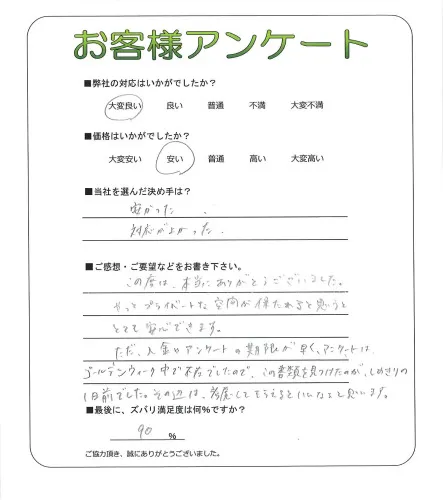 お客様アンケート
■弊社の対応はいかがでしたか?
大変良い 良い 普通 不満 大変不満
■価格はいかがでしたか?
大変安い 安い 普通 高い 大変高い
■当社を選んだ決め手は?
安かった
対応がよかった
■ご感想・ご要望などをお書き下さい。
この度は、本当にありがとうございました。
やっとプライベートな空間が保たれると思うと
とても安心できます。
ただ、入金やアンケートの期限が早く、アンケートは
ゴールデンウィーク中で不在でしたので、この書類を見つけたのが、しめきりの
1日前でした。その辺は、考慮してもらえるといいなと思います。
■最後に、ズバリ満足度は何%ですか?
90 %
ご協力頂き、誠にありがとうございました。